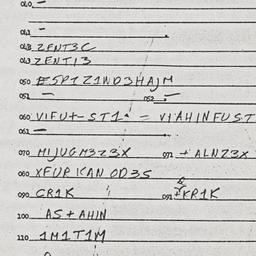 040. –
041 –
042 ZENT3C
043 ZENT13
050 ESPTZ1WD3HAJM
051 – 052. –
060 VIFU+-ST1. = V1AHINFUST
061 –
070 MIJUGM3Z3X 071 + ALNZ3X
080 XFUP KAN OD35
090 CR1K 091 KR1K
100 AS + AHIN
110 1M1T1M